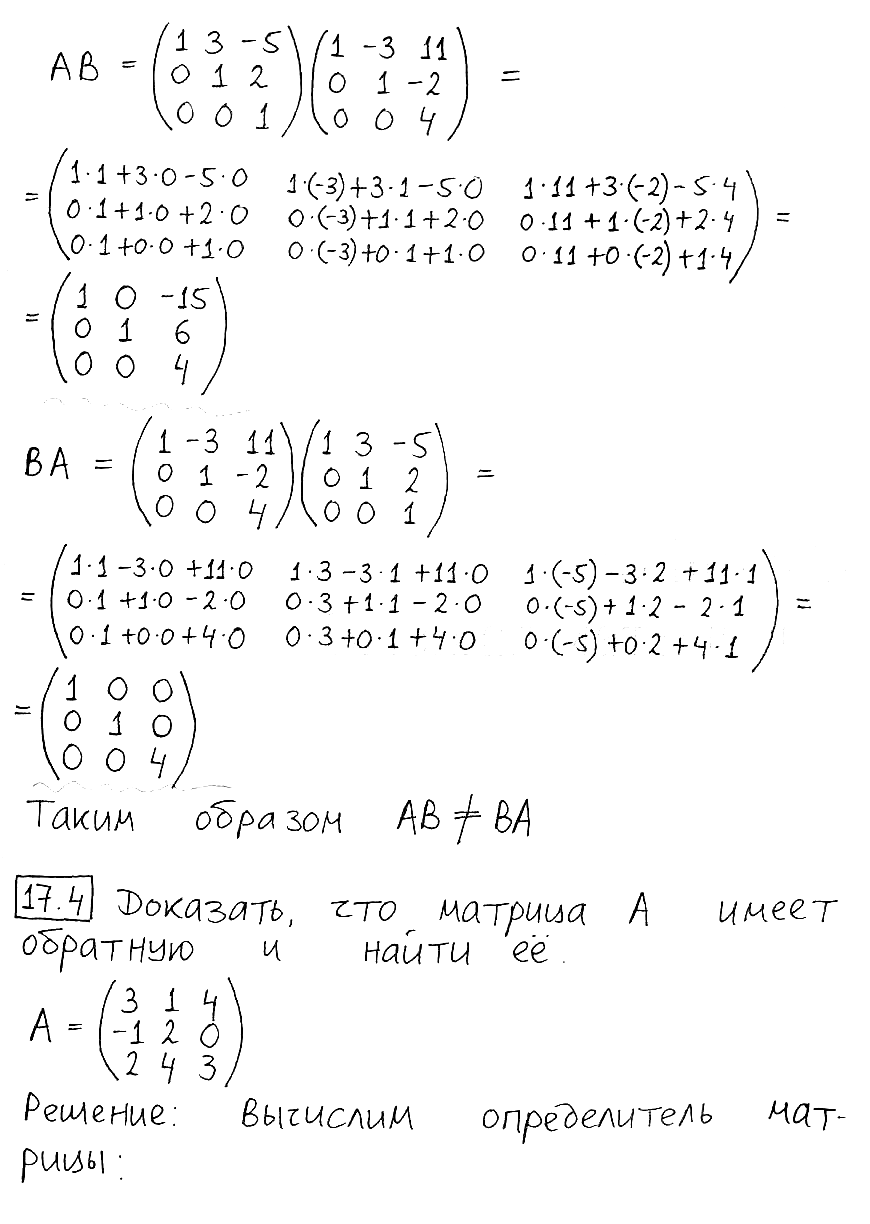 AB = (1 3 -5) (1 -3 11) =
(0 1 2) (0 1 -2)
(0 0 1) (0 0 4)
= (1·1+3·0-5·0 1·(-3)+3·1-5·0 1·11+3·(-2)-5·4) =
(0·1+1·0+2·0 0·(-3)+1·1+2·0 0·11+1·(-2)+2·4)
(0·1+0·0+1·0 0·(-3)+0·1+1·0 0·11+0·(-2)+1·4)
= (1 0 -15)
(0 1 6)
(0 0 4)
BA = (1 -3 11) (1 3 -5) =
(0 1 -2) (0 1 2)
(0 0 4) (0 0 1)
= (1·1-3·0+11·0 1·3-3·1+11·0 1·(-5)-3·2+11·1) =
(0·1+1·0-2·0 0·3+1·1-2·0 0·(-5)+1·2-2·1)
(0·1+0·0+4·0 0·3+0·1+4·0 0·(-5)+0·2+4·1)
= (1 0 0)
(0 1 0)
(0 0 4)
Таким образом AB ≠ BA
17.4 Доказать, что матрица A имеет
обратную и найти её.
A = (3 1 4)
(-1 2 0)
(2 4 3)
Решение: вычислим определитель мат-
рицы: